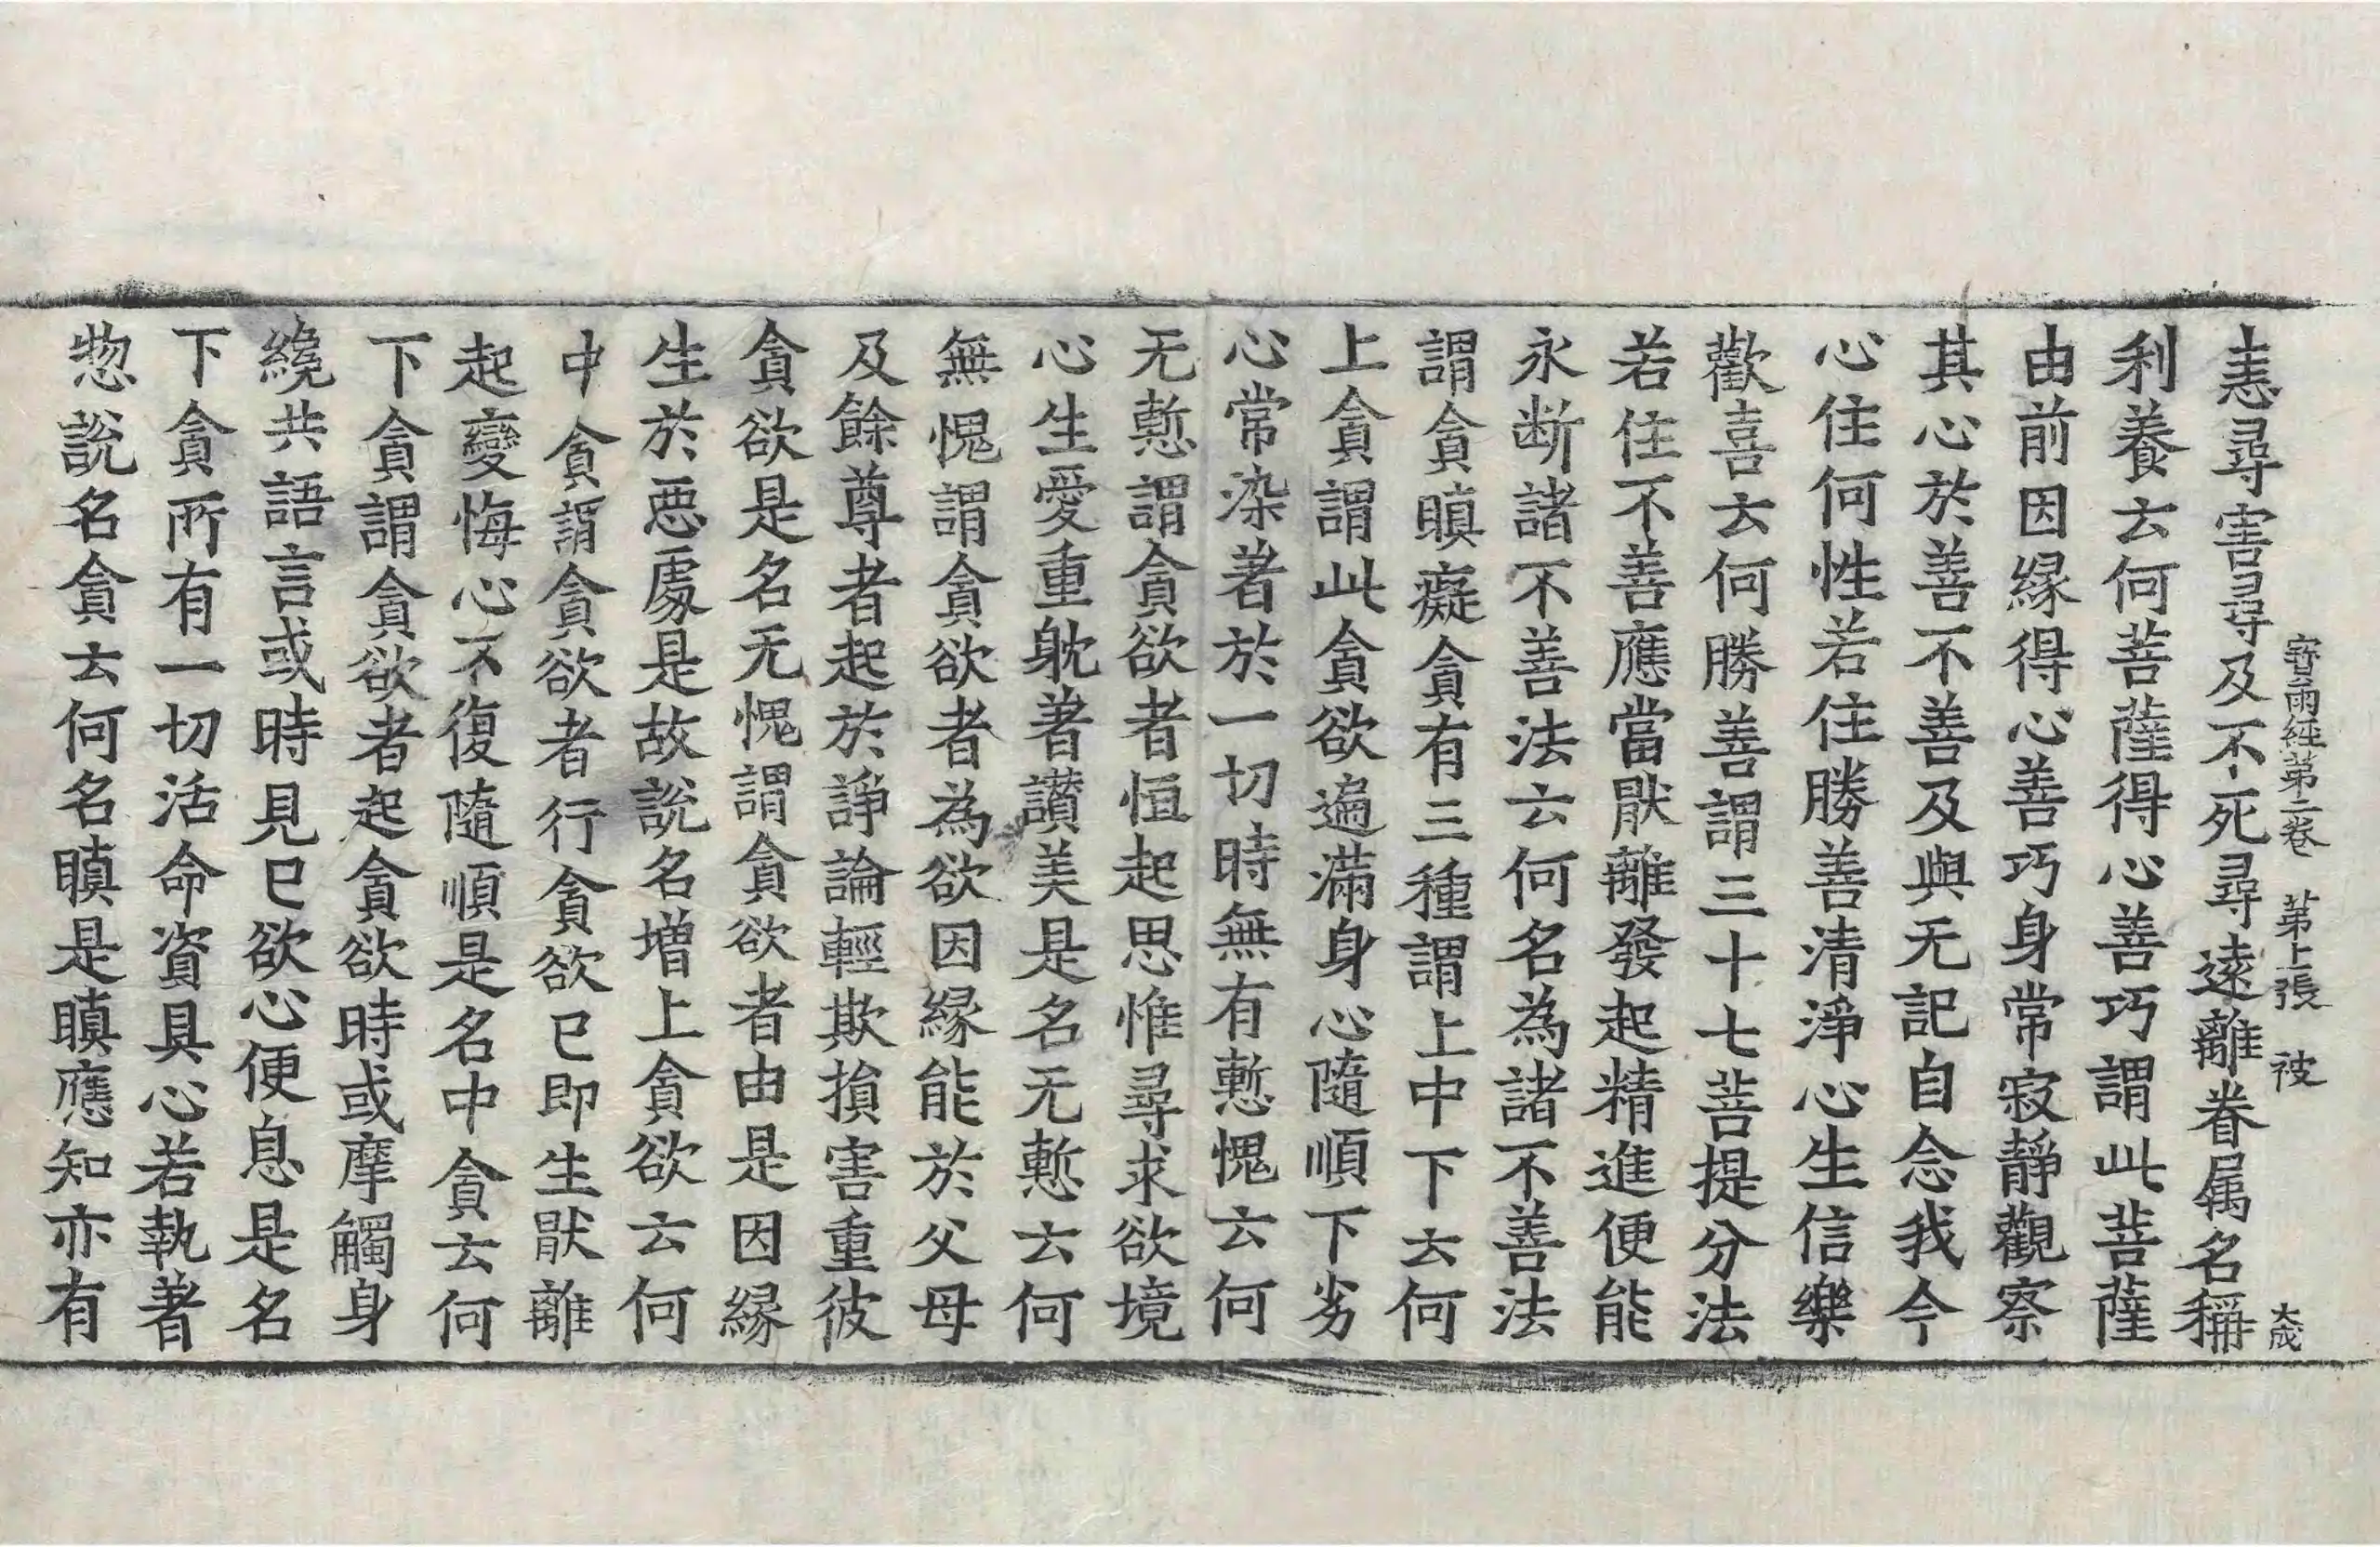 寶雨經第二卷 第上張 被 大成
恚尋害尋及不死尋遠離眷属名稱
利養云何菩薩得心善巧謂此菩薩
由前因縁得心善巧身常寂靜觀察
其心於善不善及與无記自念我今
心住何性若住勝善清淨心生信樂
歡喜云何勝善謂三十七菩提分法
若住不善應當猒離發起精進便能
永断諸不善法云何名為諸不善法
謂貪瞋癡貪有三種謂上中下云何
上貪謂此貪欲遍滿身心隨順下劣
心常染著於一切時無有慙愧云何
无慙謂貪欲者恒起思惟尋求欲境
心生愛重躭著讃美是名无慙云何
無愧謂貪欲者為欲因縁能於父母
及餘尊者起於諍論輕欺損害重彼
貪欲是名无愧謂貪欲者由是因縁
生於惡處是故說名增上貪欲云何
中貪謂貪欲者行貪欲已即生猒離
起變悔心不復隨順是名中貪云何
下貪謂貪欲者起貪欲時或摩觸身
纔共語言或時見已欲心便息是名
下貪所有一切活命資具心若執著
惣說名貪云何名瞋是瞋應知亦有